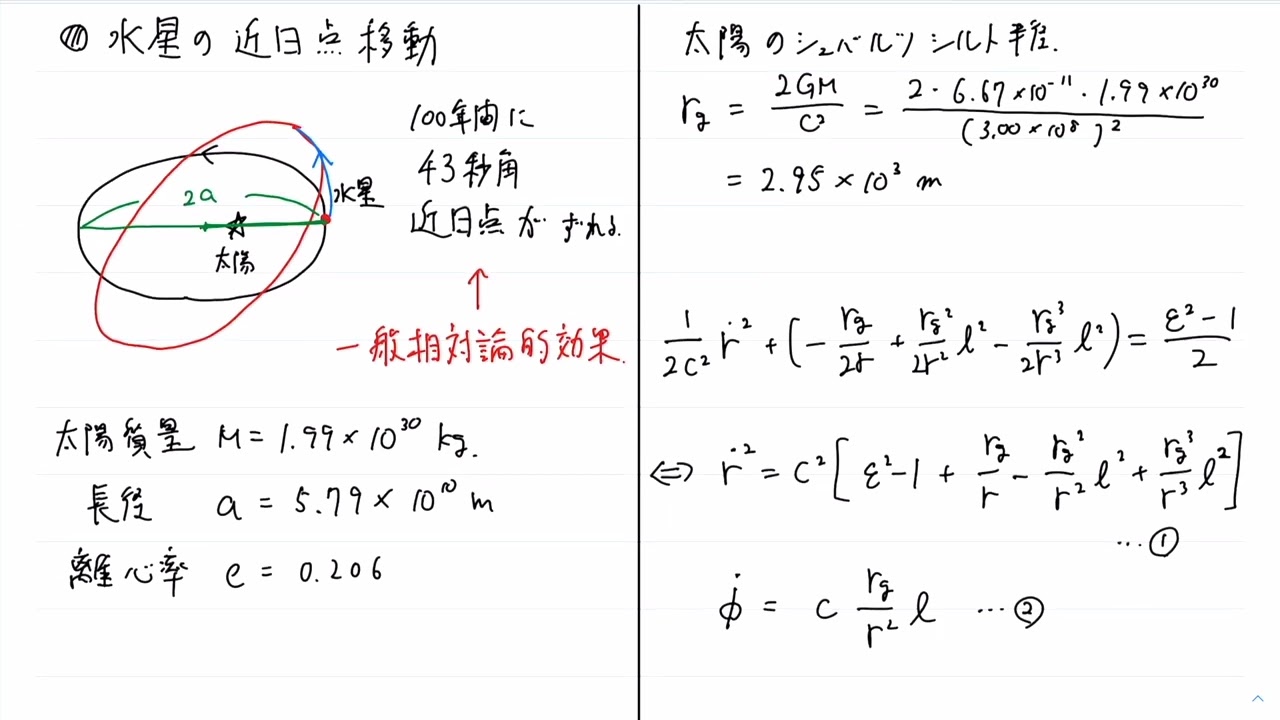 水星の近日点移動
100年間に
43秒角
近日点がずれる.
2a
水星
太陽
↑
一般相対論的効果.
太陽質量 M = 1.99 × 10^30 kg.
長径 a = 5.79 × 10^10 m
離心率 e = 0.206
太陽のシュバルツシルト半径.
r_g = 2GM/c² = 2・6.67×10^-11・1.99×10^30/(3.00×10^8)²
= 2.95 × 10³ m
1/2c² ṙ² + (- r_g/2r + r_g²/2r² l² - r_g³/2r³ l²) = ε²-1/2
⇔ ṙ² = c² [ε²-1 + r_g/r - r_g²/r² l² + r_g³/r³ l²]
… ①
φ̇ = c r_g/r² l … ②